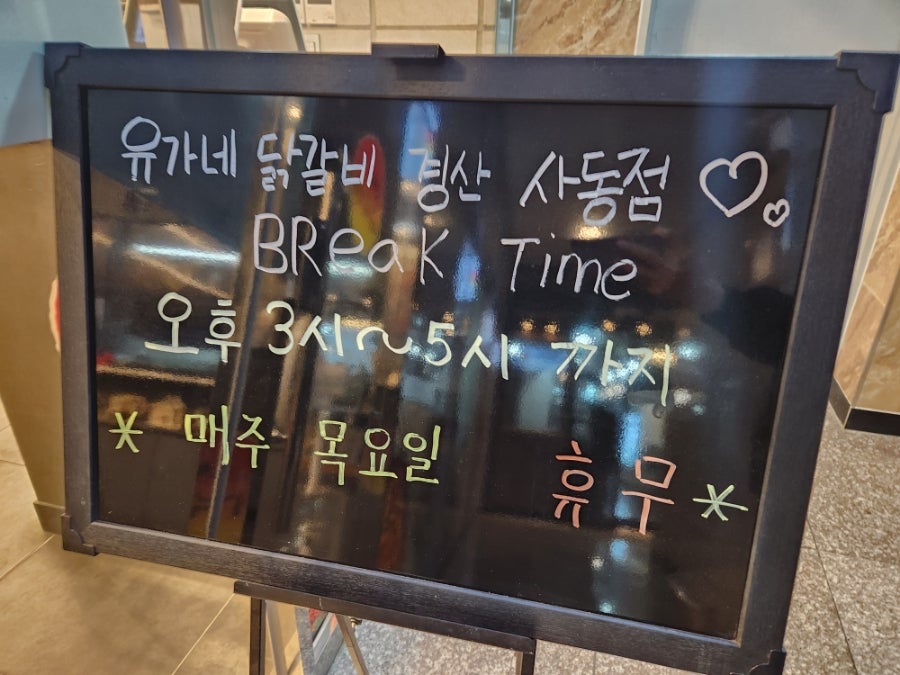 유가네 닭갈비 경산 사동점 ♡♡
BReaK Time
오후 3시~5시 까지
* 매주 목요일 휴무 *